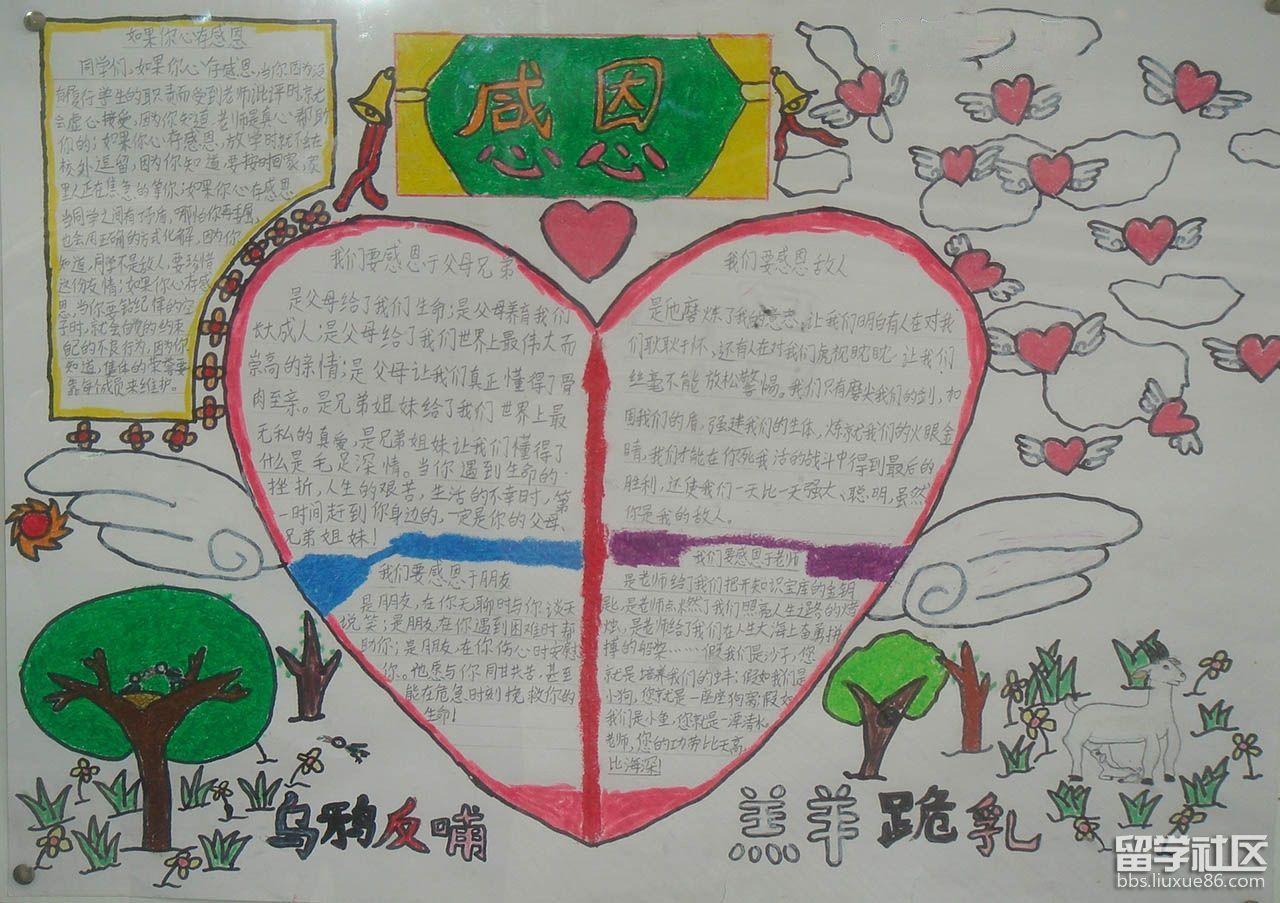 感恩
如果你心存感恩
同学们,如果你心存感恩,当你因为没
有履行学生的职责而受到老师批评时,就尤
会虚心接受,因为你知道,老师是真心帮助
你的;如果你心存感恩,放学时就不会在
校外逗留,因为你知道,要按时回家,家
里人正在焦急的等你;如果你心存感恩
当同学之间有矛盾,哪怕你再委屈,
也会用正确的方式化解,因为你
知道,同学不是敌人,要珍惜
这份友情;如果你心存感
恩,当你要钻纪律的空
子时,就会自觉的约束
自己的不良行为,因为你
知道,集体的荣誉要
靠每个成员来维护。
我们要感恩于父母兄弟
是父母给了我们生命;是父母养育我们
长大成人;是父母给了我们世界上最伟大而
崇高的亲情;是父母让我们真正懂得了骨
肉至亲。是兄弟姐妹给了我们世界上最
无私的真爱,是兄弟姐妹让我们懂得了
什么是毛足深情。当你遇到生命的
挫折,人生的艰苦,生活的不幸时,第
一时间赶到你身边的,一定是你的父母、
兄弟姐妹!
我们要感恩于朋友
是朋友,在你无聊时与你谈天
说笑;是朋友在你遇到困难时帮
助你;是朋友,在你伤心时安慰
你。他愿与你同甘共苦,甚至
能在危急时刻挽救你的
生命!
我们要感恩敌人
是他磨炼了我的意志,让我们明白有人在对我
们耿耿于怀,还有人在对我们虎视眈眈,让我们
丝毫不能放松警惕。我们只有磨尖我们的剑,加
固我们的盾,强建我们的生体,炼就我们的火眼金
睛,我们才能在你死我活的战斗中得到最后的
胜利,还使我们一天比一天强大、聪明,虽然
你是我的敌人。
我们要感恩于老师
是老师给了我们把开知识宝库的金钥
匙,是老师点然了我们照亮人生道路的烛
烛,是老师给了我们在人生大海上奋勇拼
搏的船桨……假我们是沙子,您
就是培养我们的蚌;假如我们是
小狗,您就是一座座狗窝;假如
我们是小鱼,您就是一潭清水
老师,您的功劳比天高,
比海深!
乌鸦反哺
羔羊跪乳
留学社区
bbs.liuxue86.com